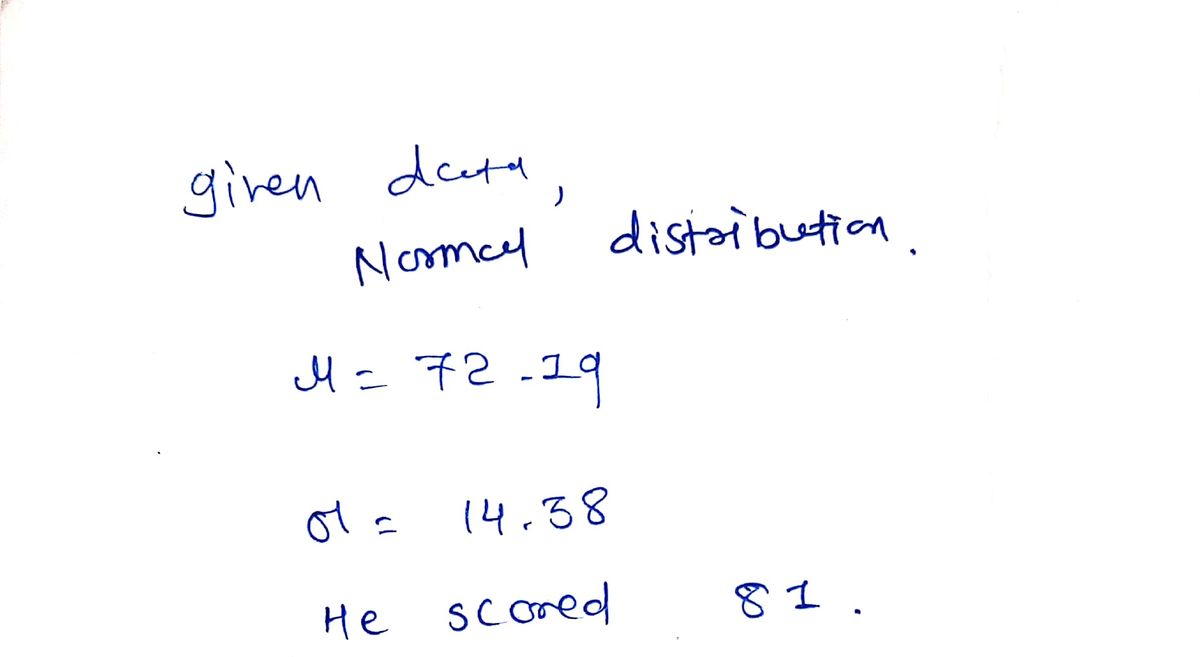 given data,
Normal distribution.
μ = 72.19
σ = 14.38
He scored 81.